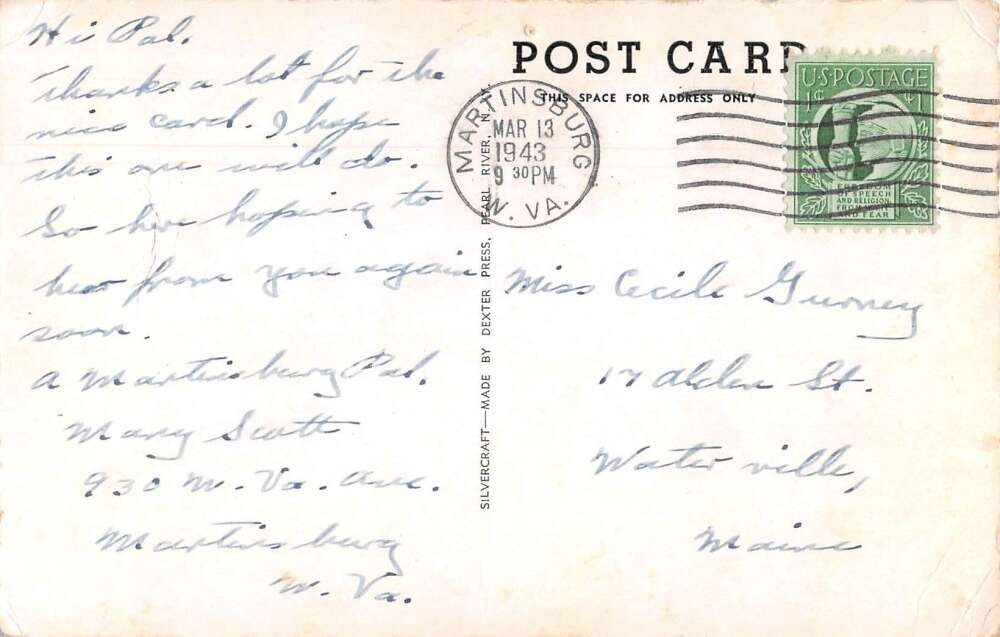 Hi Pal.
Thanks a lot for the
nice card. I hope
this one will do.
So here hoping to
hear from you again
soon.
A Martinsburg Pal.
Mary Scott
930 W. Va. Ave.
Martinsburg
W. Va.
SILVERCRAFT—MADE BY DEXTER PRESS, PEARL RIVER, N.
POST CARD
THIS SPACE FOR ADDRESS ONLY
MARTINSBURG
MAR 13
1943
9 30 PM
W. VA.
U.S. POSTAGE
1¢
FREEDOM
OF SPEECH
AND RELIGION
FROM WANT
AND FEAR
Miss Cecile Gurney
17 Alden St.
Waterville,
Maine